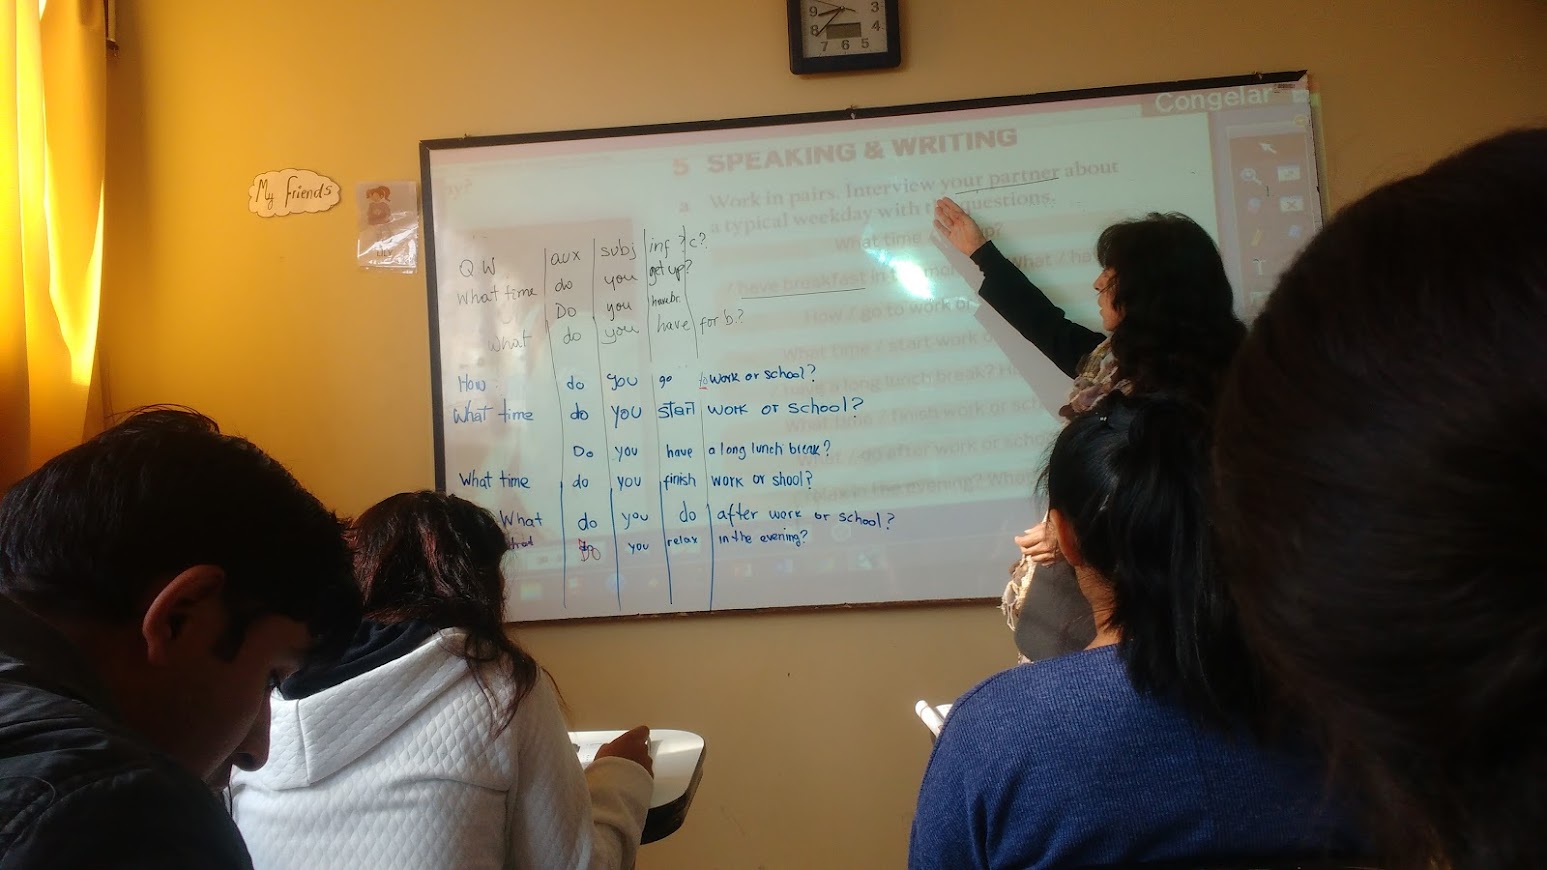 9 3
8 4
7 6 5
Congelar
My friends
LILY
5 SPEAKING & WRITING
a Work in pairs. Interview your partner about
a typical weekday with questions.
What time up?
/ have breakfast in What /
How / go to work or
What time / start work
have a long lunch break?
What time / finish work or
go after work or
relax in the evening?
QW aux subj inf? c?
What time do you get up?
Do you have br.
What do you have for b.?
How do you go to work or school?
What time do you start work or school?
Do you have a long lunch break?
What time do you finish work or shool?
What do you do after work or school?
Do you relax in the evening?